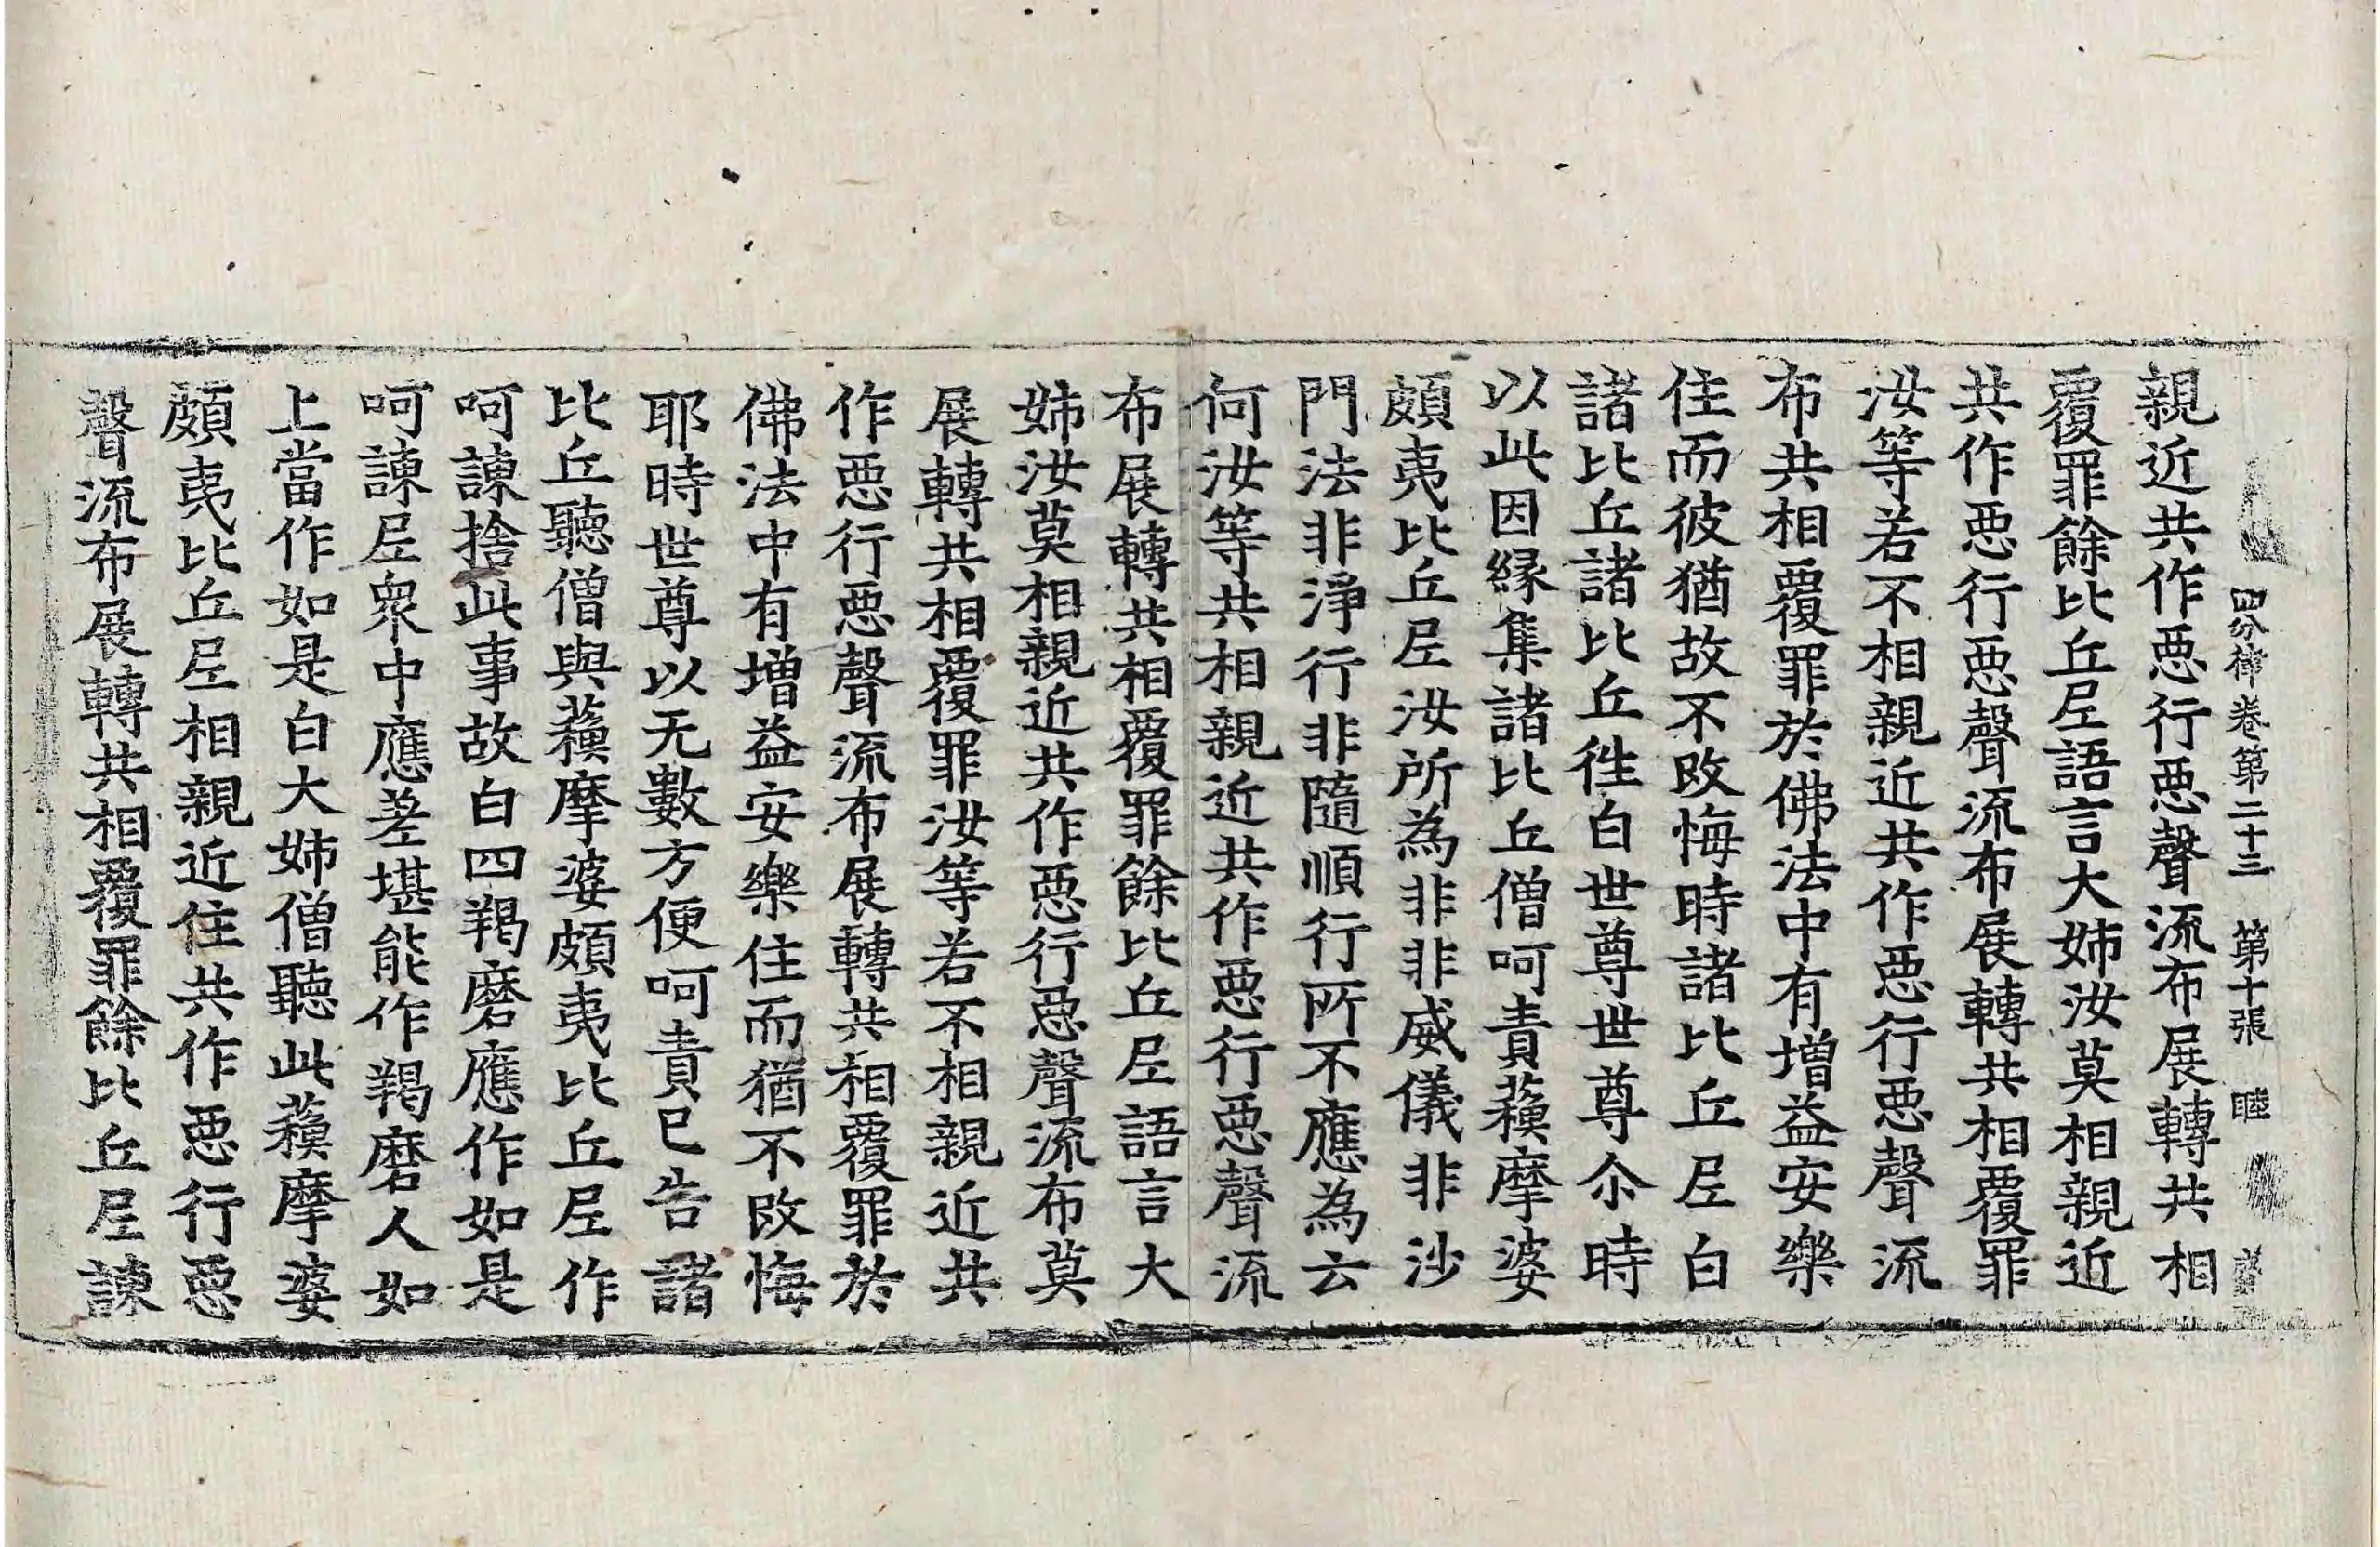 四分律卷第二十三　第十張　睦
親近共作惡行惡聲流布展轉共相
覆罪餘比丘尼語言大姉汝莫相親近
共作惡行惡聲流布展轉共相覆罪
汝等若不相親近共作惡行惡聲流
布共相覆罪於佛法中有增益安樂
住而彼猶故不改悔時諸比丘尼白
諸比丘諸比丘徃白世尊世尊尒時
以此因縁集諸比丘僧呵責蘓摩婆
頗夷比丘尼汝所為非非威儀非沙
門法非淨行非隨順行所不應為云
何汝等共相親近共作惡行惡聲流
布展轉共相覆罪餘比丘尼語言大
姉汝莫相親近共作惡行惡聲流布莫
展轉共相覆罪汝等若不相親近共
作惡行惡聲流布展轉共相覆罪於
佛法中有增益安樂住而猶不改悔
耶時世尊以无數方便呵責已告諸
比丘聽僧與蘓摩婆頗夷比丘尼作
呵諫捨此事故白四羯磨應作如是
呵諫尼衆中應差堪能作羯磨人如
上當作如是白大姉僧聽此蘓摩婆
頗夷比丘尼相親近住共作惡行惡
聲流布展轉共相覆罪餘比丘尼諫